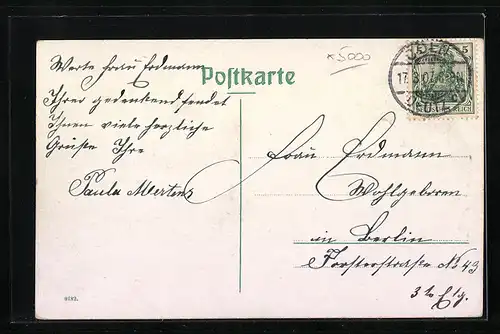 x5000
Werte Frau Erdmann
Ihrer gedenkend sendet
Ihnen viele herzliche
Grüße Ihre
Paula Mertens
Postkarte
5
REICH
CÖLN
17.3.07
DEUTZ
Frau Erdmann
Wohlgeboren
in Berlin
Forsterstraße No 43
3te Etg.